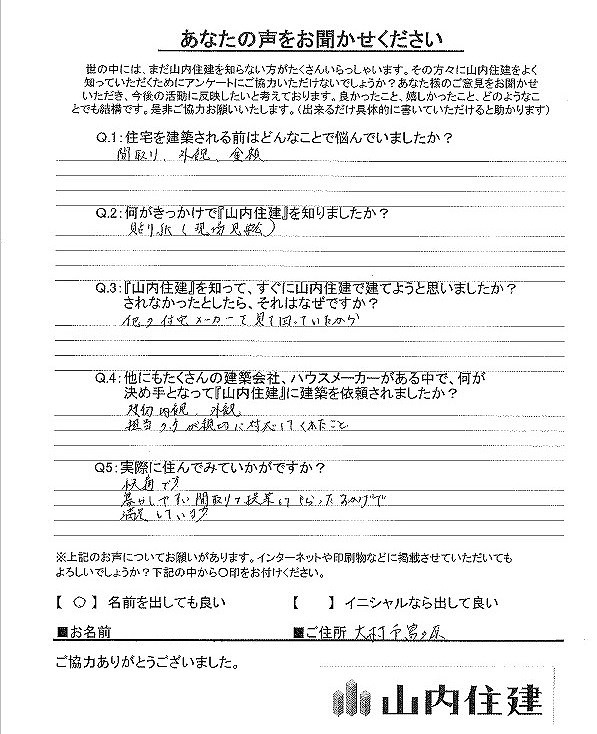 あなたの声をお聞かせください
世の中には、まだ山内住建を知らない方がたくさんいらっしゃいます。その方々に山内住建をよく
知っていただくためにアンケートにご協力いただけないでしょうか？あなた様のご意見をお聞かせ
いただき、今後の活動に反映したいと考えております。良かったこと、嬉しかったこと、どのようなこ
とでも結構です。是非ご協力お願いいたします。（出来るだけ具体的に書いていただけると助かります）
Q.1：住宅を建築される前はどんなことで悩んでいましたか？
間取り、外観、金額
Q.2：何がきっかけで『山内住建』を知りましたか？
貼り紙（現場見学）
Q.3：『山内住建』を知って、すぐに山内住建で建てようと思いましたか？
されなかったとしたら、それはなぜですか？
他の住宅メーカーも見て回っていたから
Q.4：他にもたくさんの建築会社、ハウスメーカーがある中で、何が
決め手となって『山内住建』に建築を依頼されましたか？
内観、外観
担当の方が親切に対応してくれたこと
Q5：実際に住んでみていかがですか？
快適です
暮らしやすい間取りを提案してもらったおかげで
満足しています
※上記のお声についてお願いがあります。インターネットや印刷物などに掲載させていただいても
よろしいでしょうか？下記の中から〇印をお付けください。
【 〇 】 名前を出しても良い 【 】 イニシャルなら出して良い
■お名前 ■ご住所 大村市宮ヶ原
ご協力ありがとうございました。
山内住建